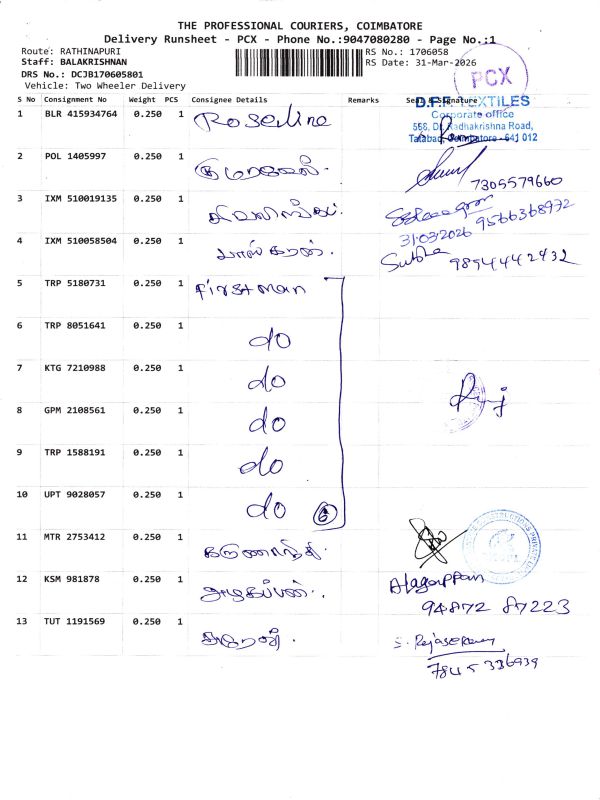 THE PROFESSIONAL COURIERS, COIMBATORE
Delivery Runsheet - PCX - Phone No.:9047080280 - Page No.:1
Route: RATHINAPURI
RS No.: 1706058
Staff: BALAKRISHNAN
RS Date: 31-Mar-2026
DRS No.: DCJB170605801
Vehicle: Two Wheeler Delivery
PCX
S No Consignment No Weight PCS Consignee Details Remarks Seal & Signature
D.F.F. TEXTILES
Corporate office
558, Dr. Radhakrishna Road,
Tatabad, Coimbatore - 641 012
1 BLR 415934764 0.250 1 Roseline
2 POL 1405997 0.250 1 குமரவேல்.
7305579660
3 IXM 510019135 0.250 1
9566368972
31/03/2026
4 IXM 510058504 0.250 1 பாஸ்கரன்.
Subha 9894442432
5 TRP 5180731 0.250 1 First man
6 TRP 8051641 0.250 1 do
7 KTG 7210988 0.250 1 do
8 GPM 2108561 0.250 1 do
9 TRP 1588191 0.250 1 do
10 UPT 9028057 0.250 1 do 6
11 MTR 2753412 0.250 1
12 KSM 981878 0.250 1 அழகப்பன்.
Alagappan
94872 87223
13 TUT 1191569 0.250 1
S. Rajasekaran
7845 336939